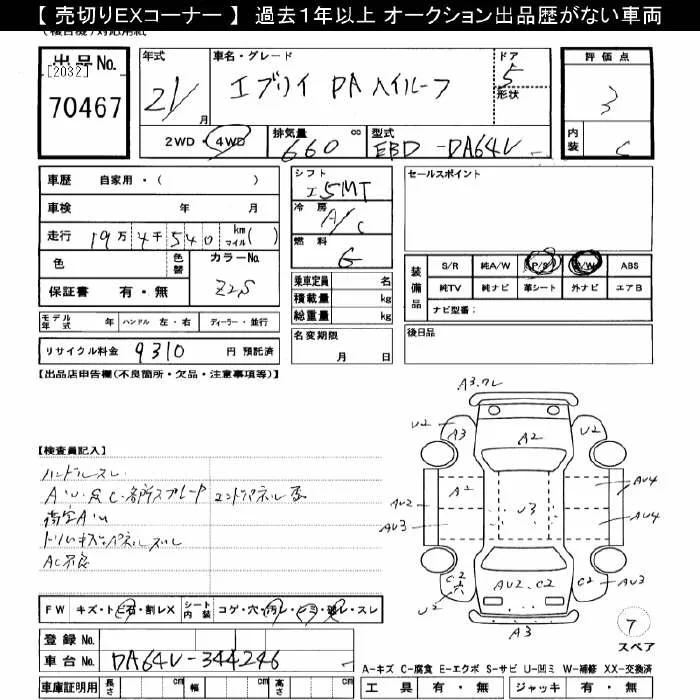 【 売切りEXコーナー 】 過去1年以上 オークション出品歴がない車両
出品No.
[2032]
70467
年式
21/
月
車名・グレード
エブリイ PA ハイルーフ
ドア
5
形状
評価点
3
内装
C
2WD・4WD
排気量
660
cc
型式
EBD -DA64V
車歴 自家用・( )
車検 年 月
走行 19万 4千 540 km マイル ( )
色
色替
カラーNo.
Z2S
保証書 有・無
シフト
I5MT
冷房
A/C
燃料
G
乗車定員 名
積載量 kg
総重量 kg
セールスポイント
装備品
S/R 純A/W P/S P/W ABS
純TV 純ナビ 革シート 外ナビ エアB
ナビ型番:
モデル年式 年 ハンドル 左・右 ディーラー・並行
リサイクル料金 9310 円 預託済
名変期限
月 日
後日品
【出品店申告欄(不良箇所・欠品・注意事項等)】
【検査員記入】
ハンドルスレ
A・U・C・各所スプレード エンドパネル
荷室AU
トリムキズ・パネルズレ
AC不良
FW キズ・ト・石・割レX シート内装 コゲ・穴・汚レ・ヒミ・破レ・スレ
登録No.
車台No. DA64V-344246
車庫証明用 長さ cm 幅 cm 高さ cm
A3.ワレ
U2
A3
A2
U2
A2
U3
AU4
AU2
AU3
AU4
C2
穴
U2
AU2.C2
C2
AU3
A3
7
スペア
A-キズ C-腐食 E-エクボ S-サビ U-凹ミ W-補修 XX-交換済
工具 有・無 ジャッキ 有・無